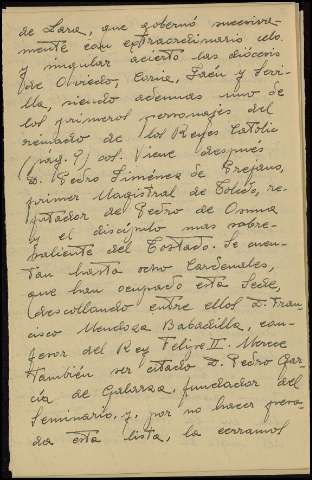 de Lara, que gobernó sucesiva-
mente con extraordinario celo
y singular acierto las diócesis
de Oviedo, Coria, Jaén y Sevi-
lla, siendo además uno de
los primeros personajes del
reinado de los Reyes Católi-
(pág. 9) cos. Viene después
D. Pedro Jiménez de Prejano,
primer Magistral de Toledo, re-
futador de Pedro de Osma
y el discípulo mas sobre-
saliente del Tostado. Se cuen-
tan hasta ocho Cardenales,
que han ocupado esta Sede,
descollando entre ellos D. Fran-
cisco Mendoza Babadilla, con-
fesor del Rey Felipe II. Merece
también ser citado D. Pedro Gar-
cía de Galarza, fundador del
Seminario, y, por no hacer pesa-
da esta lista, la cerramos